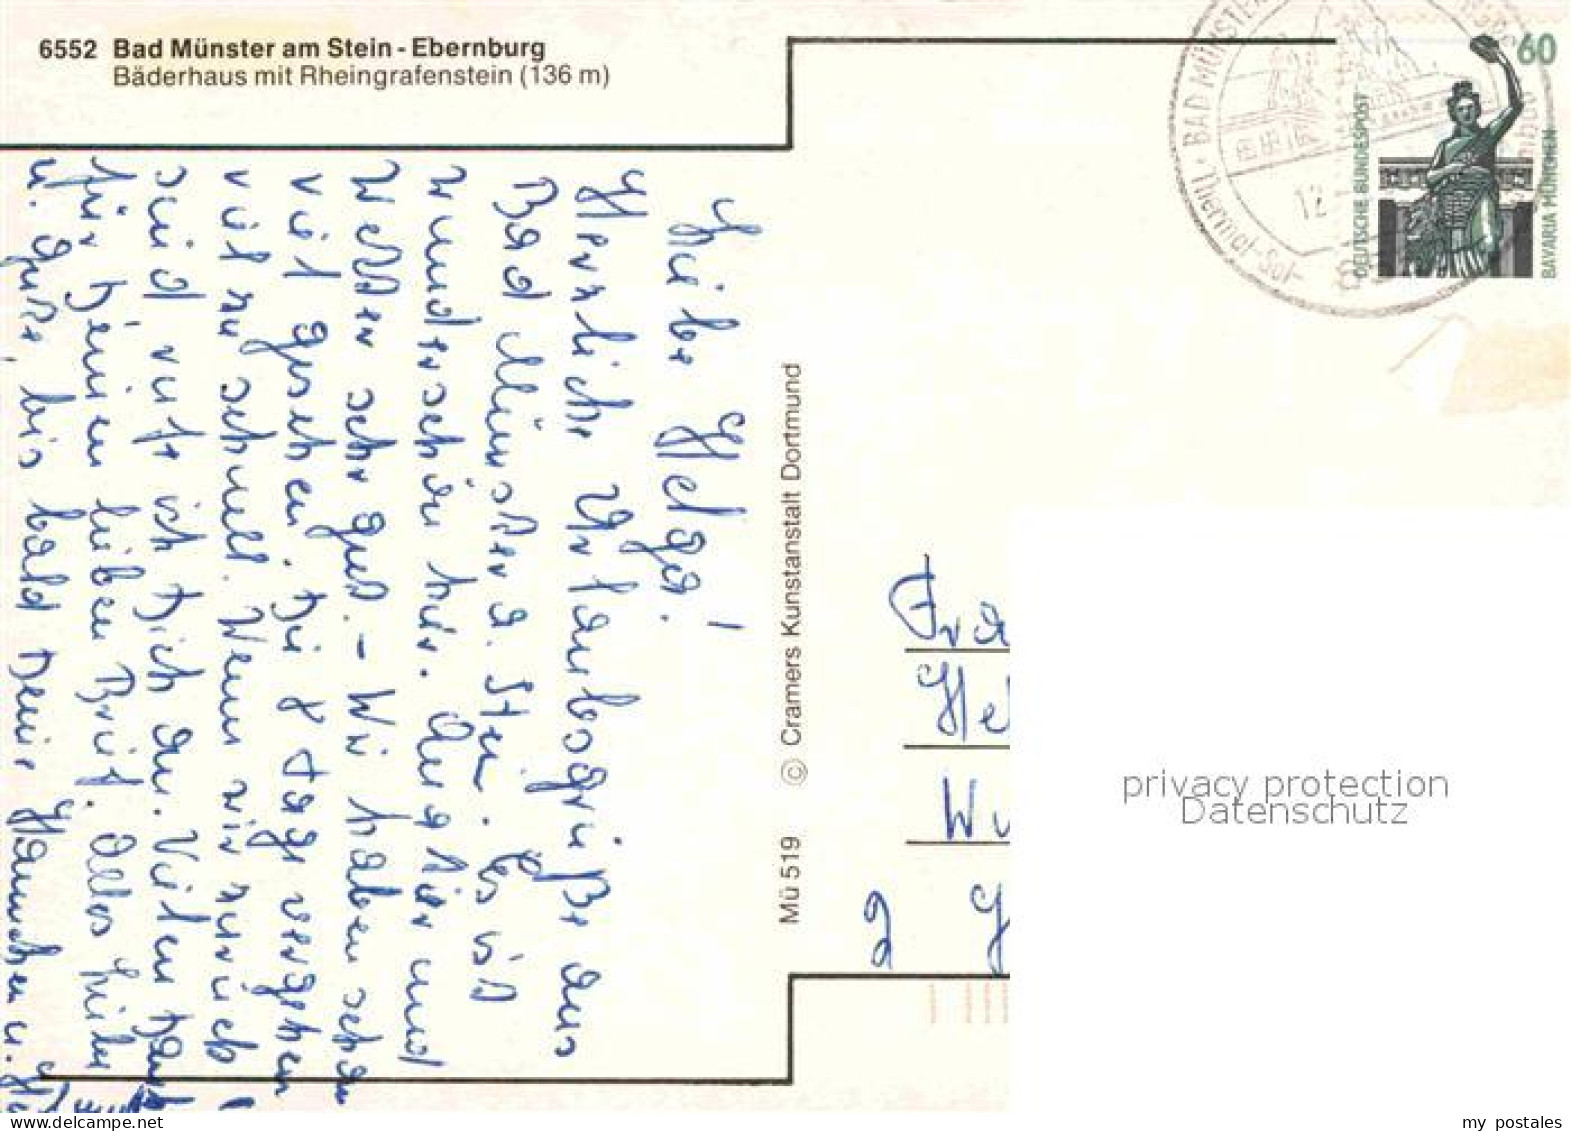 6552 Bad Münster am Stein - Ebernburg
Bäderhaus mit Rheingrafenstein (136 m)
Liebe Helga!
Herzliche Urlaubsgrüße aus
Bad Münster a. Stein. Es ist
wunderschön hier. Quartier und
Wetter sehr gut. - Wir haben schon
viel gesehen. Die 8 Tage vergehen
viel zu schnell. Wenn wir zurück
sind rufe ich Dich an. Vielen Dank
für Deinen lieben Brief. Alles Liebe
u. Gute, bis bald Deine Hannchen u.
© Cramers Kunstanstalt Dortmund
Mü 519
BAD MÜNSTER
Thermal-Sol-
12
60
DEUTSCHE BUNDESPOST
BAVARIA MÜNCHEN
Fra
Hel
W
2 G
privacy protection
Datenschutz
www.delcampe.net
my_postales